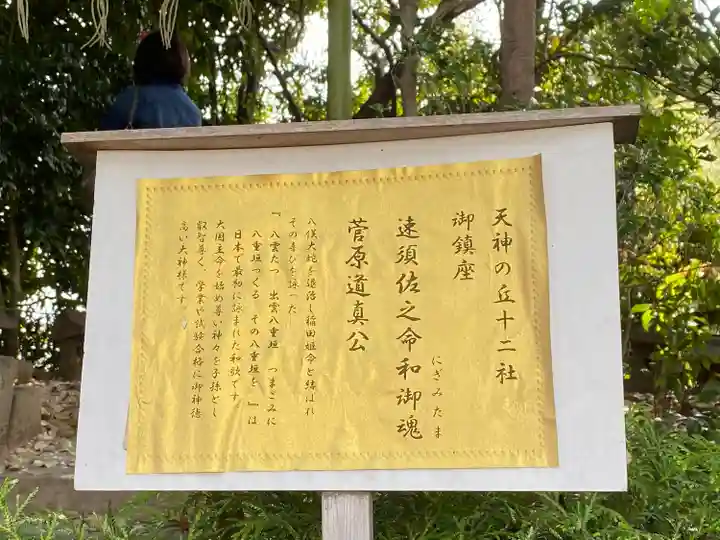 天神の丘十二社
御鎮座
速須佐之命和御魂
にぎみたま
菅原道真公
八俣大蛇を退治し稲田姫命と結ばれ
その喜びを詠った
『八雲たつ 出雲八重垣 つまごみに
八重垣つくる その八重垣を』は
日本で最初に詠まれた和歌です
大国主命を始め尊い神々を子孫とし
叡智尊く、学業や試験合格に御神徳
高い大神様です